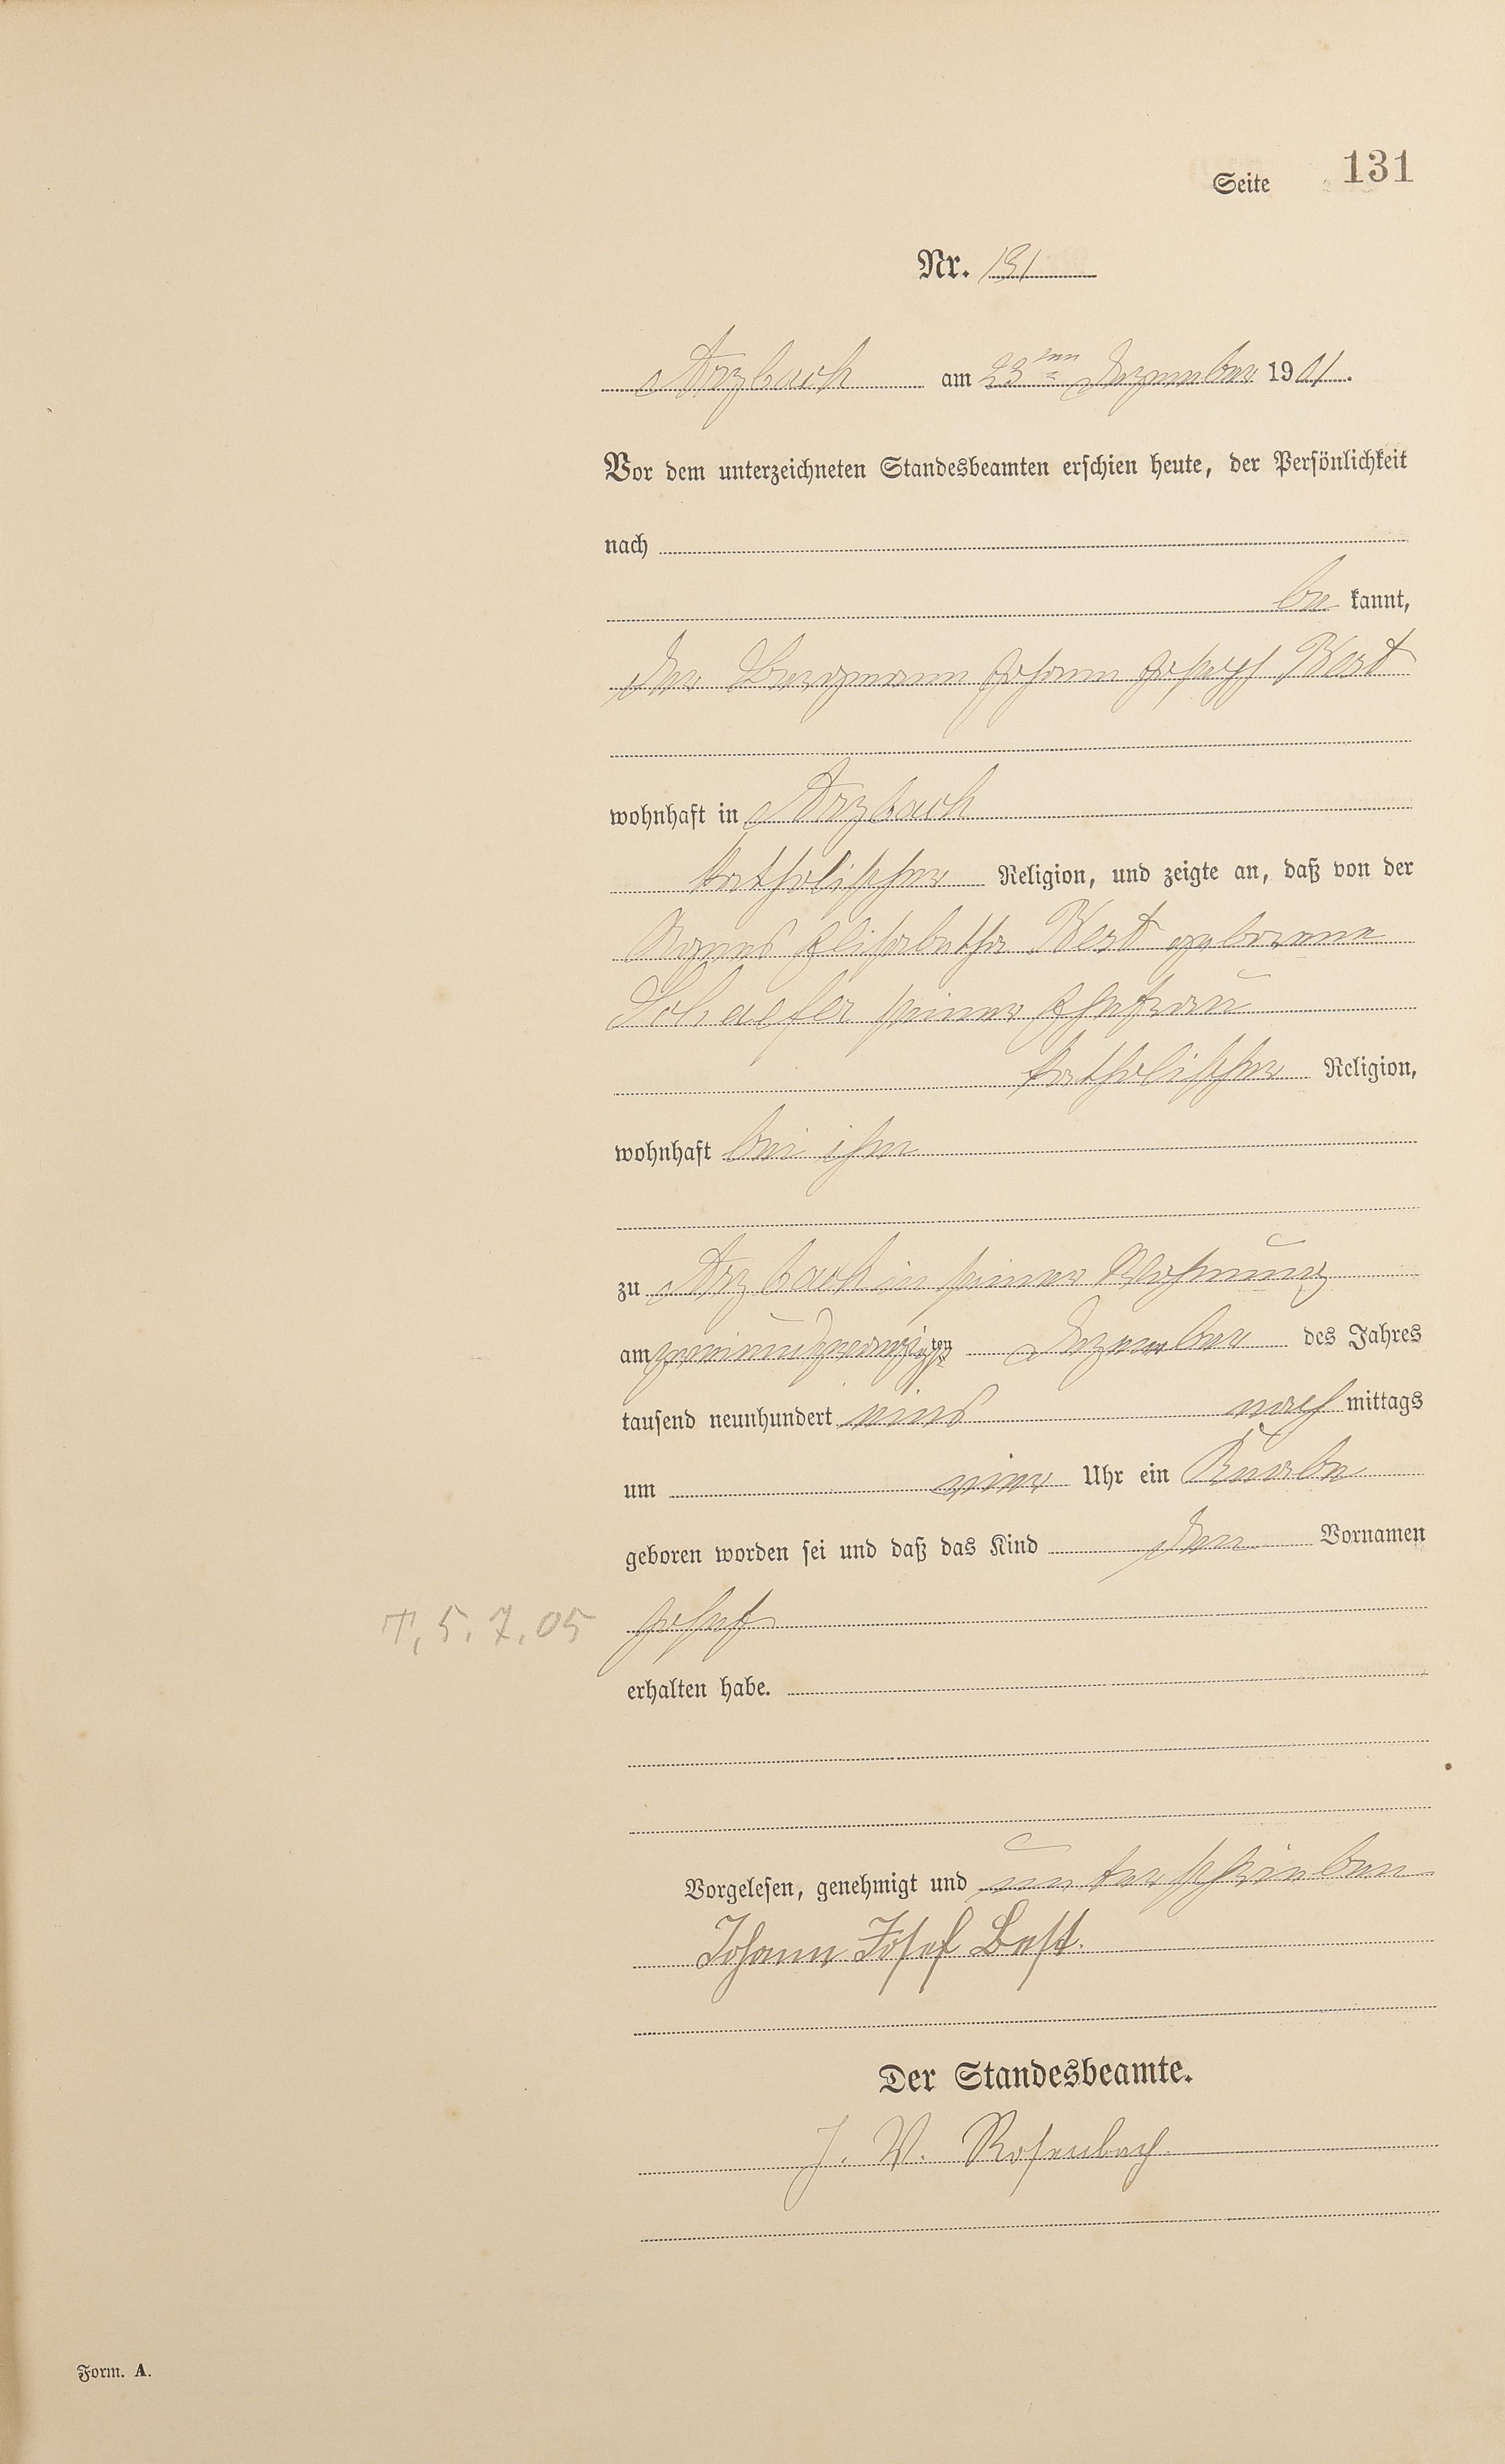 Seite 131
Nr. 131
Arzbach am 23ten Dezember 1901.
Vor dem unterzeichneten Standesbeamten erschien heute, der Persönlichkeit
nach
be kannt,
der Bergmann Johann Joseph Best
wohnhaft in Arzbach
katholischer Religion, und zeigte an, daß von der
Agnes Elisabetha Best geborene
Schaefer seiner Ehefrau
katholischer Religion,
wohnhaft bei ihm
zu Arzbach in seiner Wohnung
am zweiundzwanzigsten Dezember des Jahres
tausend neunhundert eins nach mittags
um vier Uhr ein Knabe
geboren worden sei und daß das Kind den Vornamen
†, 5. 7. 05 Josef
erhalten habe.
Vorgelesen, genehmigt und unterschrieben
Johann Josef Best.
Der Standesbeamte.
J. W. Rosenbach
Form. A.